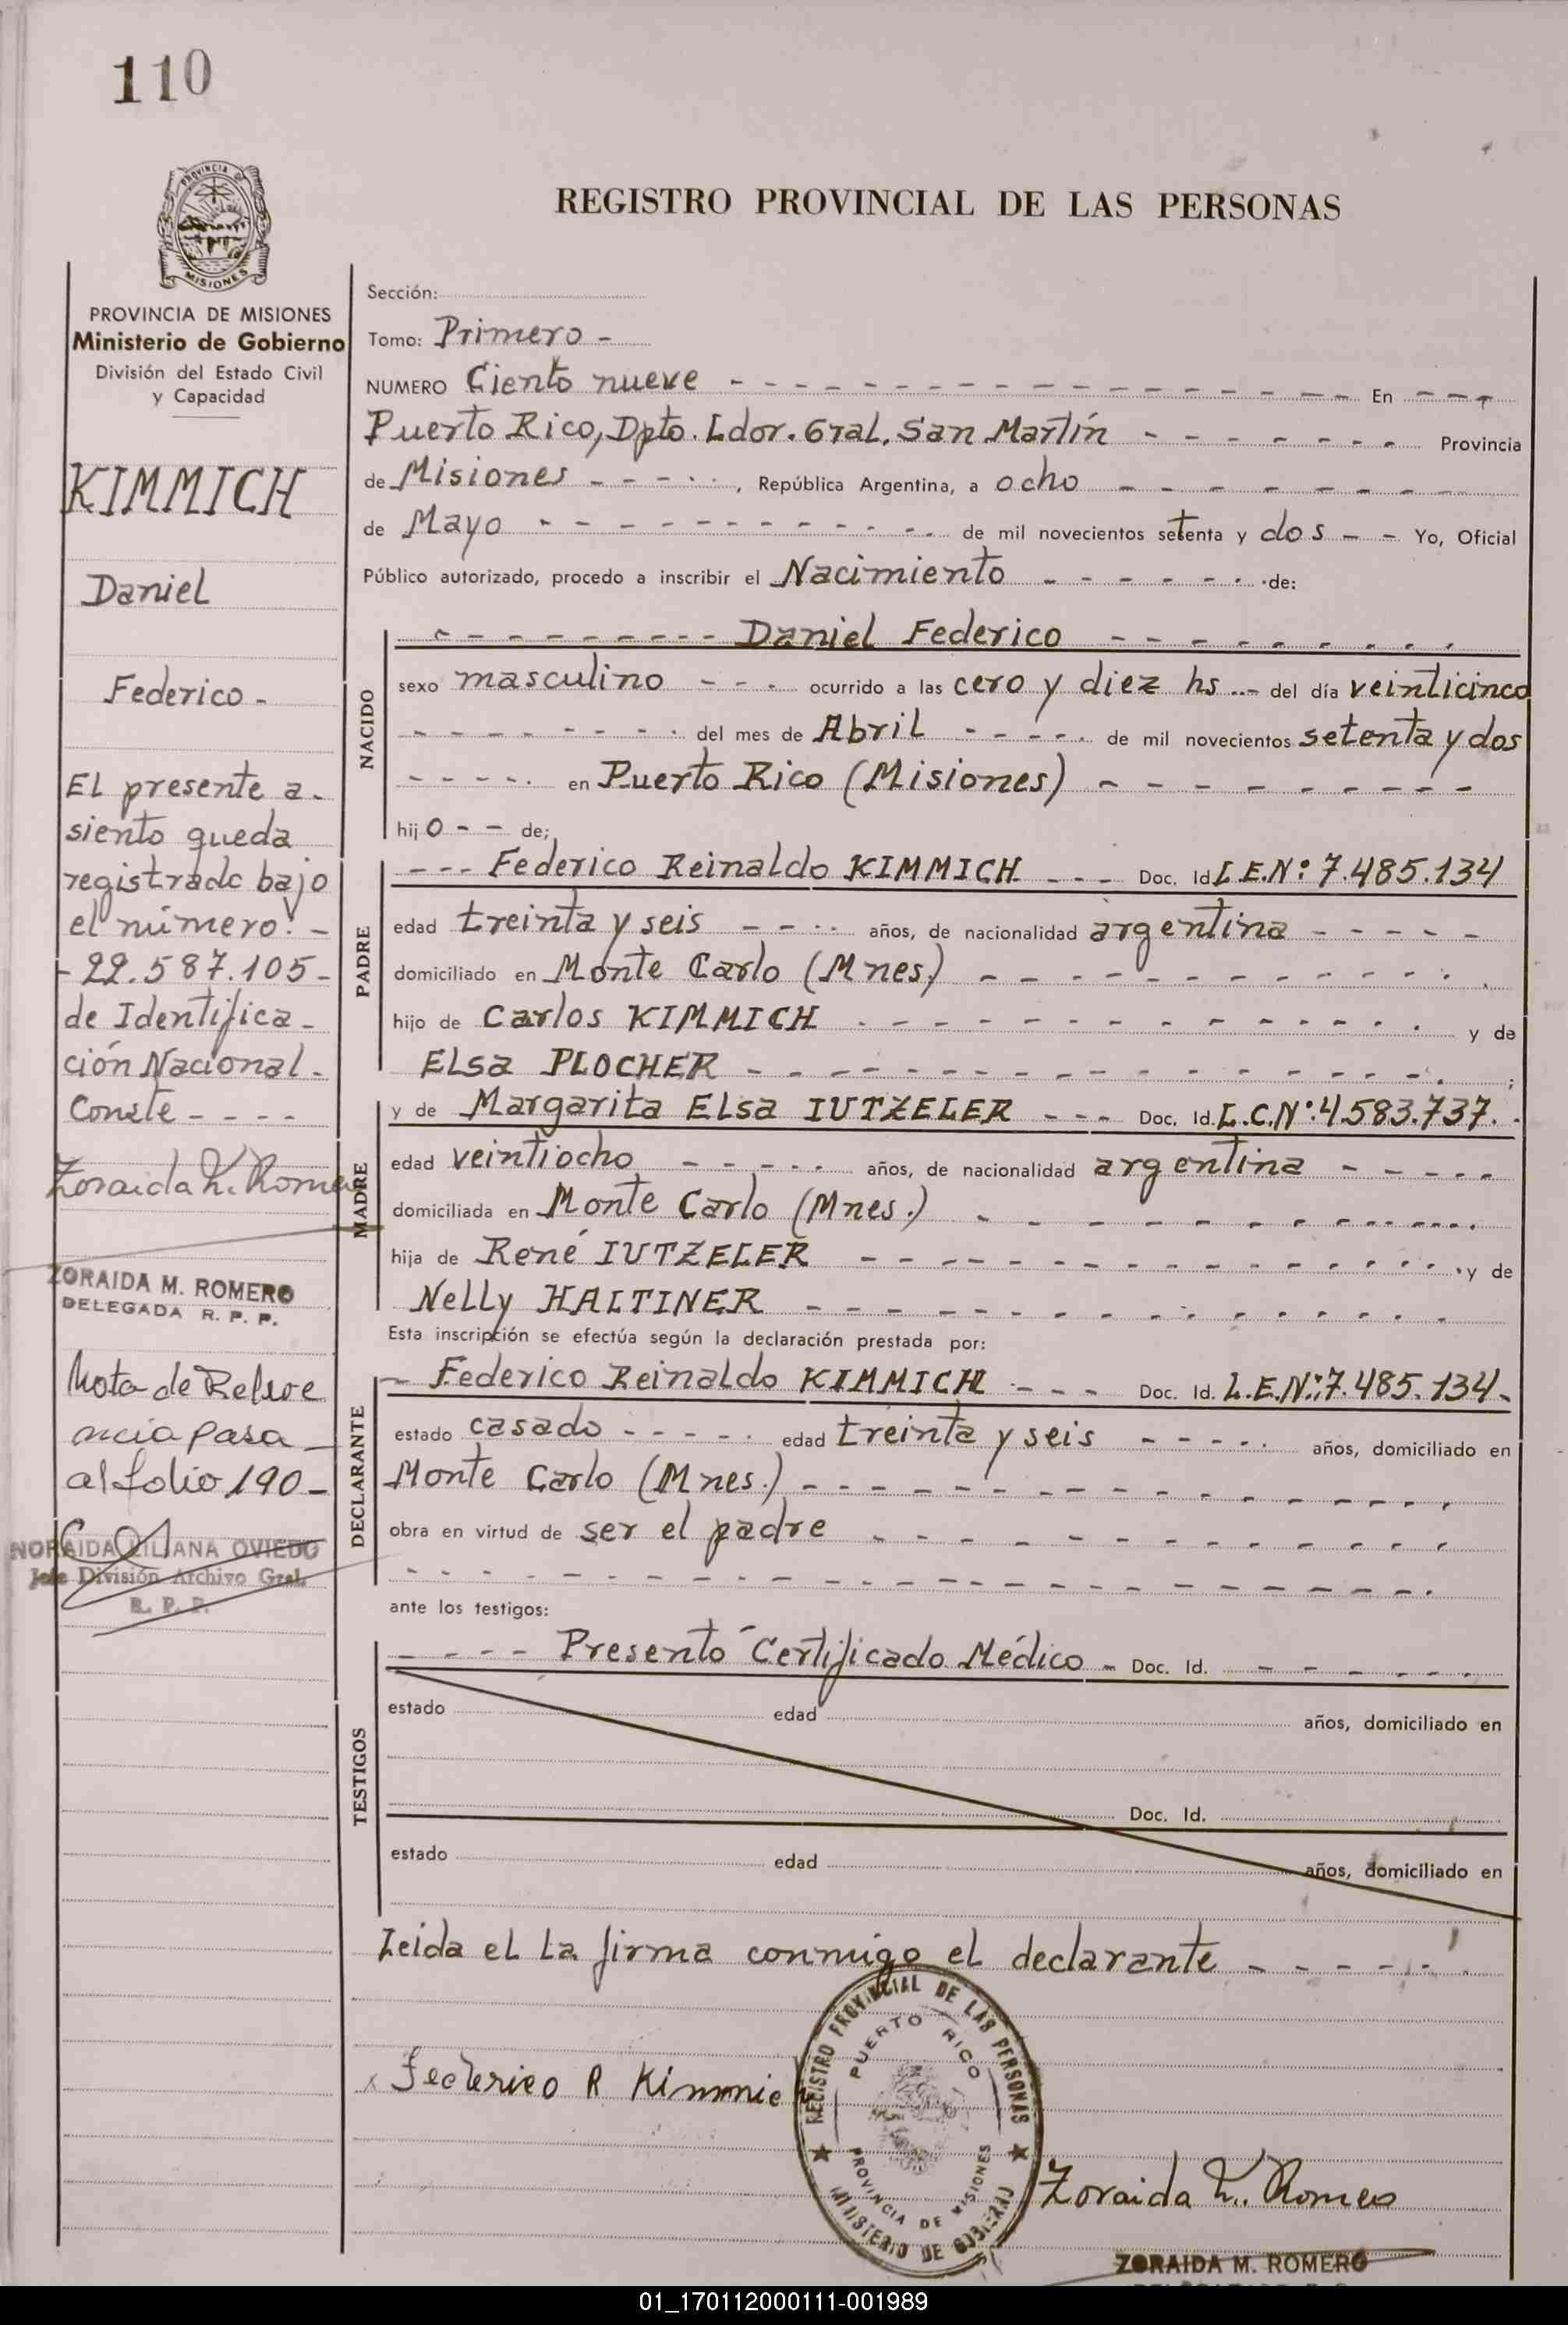 110
PROVINCIA DE
MISIONES
REGISTRO PROVINCIAL DE LAS PERSONAS
PROVINCIA DE MISIONES
Ministerio de Gobierno
División del Estado Civil
y Capacidad
KIMMICH
Daniel
Federico -
El presente a-
siento queda
registrado bajo
el número: -
- 22.587.105 -
de Identifica-
ción Nacional -
Conste - - - -
Zoraida M. Romero
ZORAIDA M. ROMERO
DELEGADA R. P. P.
Nota de Refere
ncia pasa -
al folio 190 -
NORAIDA LILIANA OVIEDO
Jefe División Archivo Gral.
R. P. P.
Sección:
Tomo: Primero -
NUMERO Ciento nueve - - - En - - -
Puerto Rico, Dpto. Ldor. Gral. San Martín - - - Provincia
de Misiones - - - , República Argentina, a ocho - - -
de Mayo - - - de mil novecientos setenta y dos - - Yo, Oficial
Público autorizado, procedo a inscribir el Nacimiento - - - de:
NACIDO
- - - Daniel Federico - - -
sexo masculino - - - ocurrido a las cero y diez hs - - del día veinticinco
- - - del mes de Abril - - - de mil novecientos setenta y dos
- - - en Puerto Rico (Misiones) - - -
hijo - - de;
PADRE
- - - Federico Reinaldo KIMMICH - - - Doc. Id. L.E.Nº: 7.485.134
edad treinta y seis - - - años, de nacionalidad argentina - - -
domiciliado en Monte Carlo (Mnes.) - - -
hijo de Carlos KIMMICH - - - y de
Elsa PLOCHER - - - ;
MADRE
y de Margarita Elsa IUTZELER - - - Doc. Id. L.C.Nº: 4.583.737. -
edad veintiocho - - - años, de nacionalidad argentina - - -
domiciliada en Monte Carlo (Mnes.) - - -
hija de René IUTZELER - - - y de
Nelly HALTINER - - -
Esta inscripción se efectúa según la declaración prestada por:
DECLARANTE
- Federico Reinaldo KIMMICH - - - Doc. Id. L.E.Nº: 7.485.134 -
estado casado - - - edad treinta y seis - - - años, domiciliado en
Monte Carlo (Mnes.) - - -
obra en virtud de ser el padre - - -
ante los testigos:
TESTIGOS
- - - - Presentó Certificado Médico - Doc. Id. - - -
estado edad años, domiciliado en
Doc. Id.
estado edad años, domiciliado en
Leida el La firma conmigo el declarante - - -
REGISTRO PROVINCIAL DE LAS PERSONAS
PUERTO RICO
PROVINCIA DE MISIONES
MINISTERIO DE GOBIERNO
x Federico R Kimmich
Zoraida M. Romero
ZORAIDA M. ROMERO
01_170112000111-001989